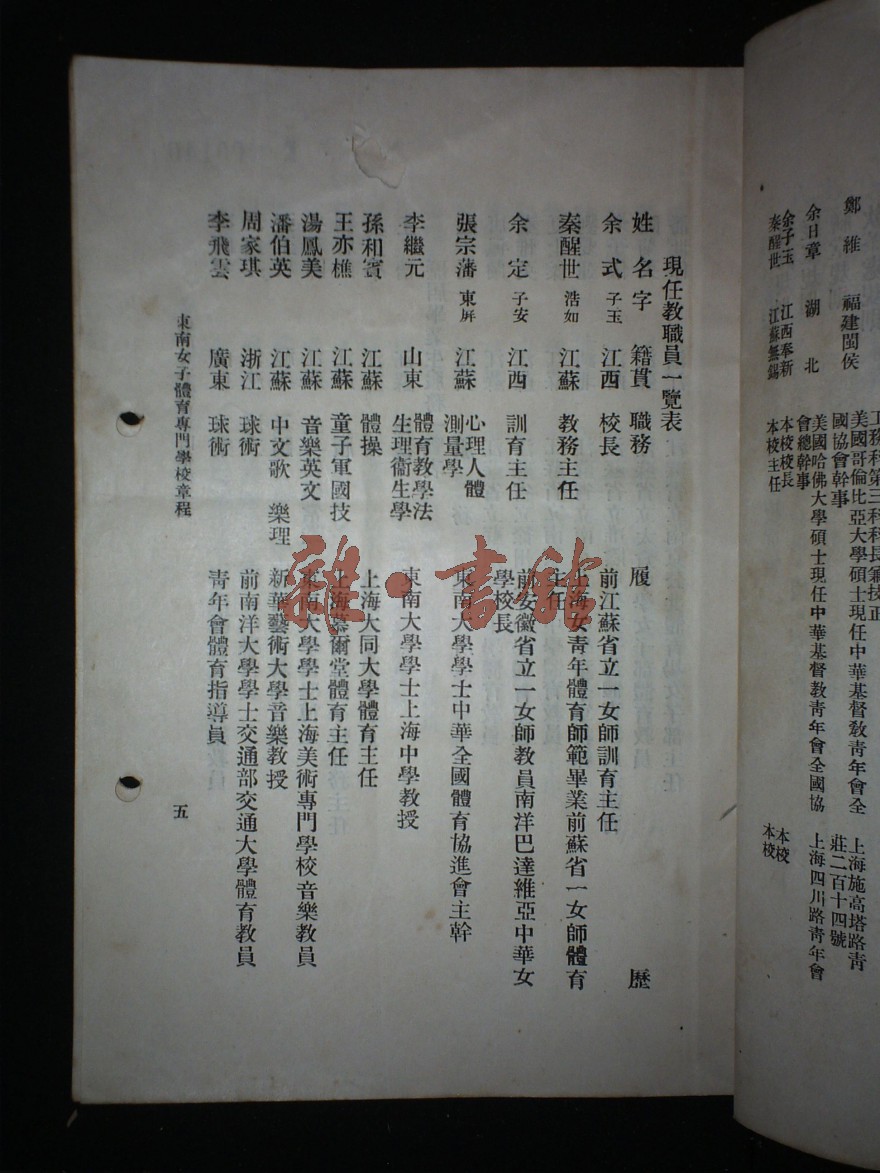 鄭維 福建閩侯 美國哥倫比亞大學碩士現任中華基督教靑年會全國協會幹事 上海施高塔路靑莊二百十四號
余日章 湖北 美國哈佛大學碩士現任中華基督教靑年會全國協會總幹事 上海四川路靑年會
余子玉 江西奉新 本校校長 本校
秦醒世 江蘇無錫 本校主任 本校
現任教職員一覽表
姓名 字 籍貫 職務 履歷
余式 子玉 江西 校長 前江蘇省立一女師訓育主任
秦醒世 浩如 江蘇 教務主任 上海女靑年體育師範畢業前蘇省一女師體育主任
余定 子安 江西 訓育主任 前安徽省立一女師教員南洋巴達維亞中華女學校長
張宗藩 東屛 江蘇 心理人體測量學 東南大學學士中華全國體育協進會主幹
李繼元 山東 體育教學法生理衞生學 東南大學學士上海中學教授
孫和賓 江蘇 體操 上海大同大學體育主任
王亦樵 江蘇 童子軍國技 上海慕爾堂體育主任
湯鳳美 江蘇 音樂英文 東南大學學士上海美術專門學校音樂教員
潘伯英 江蘇 中文歌 樂理 新華藝術大學音樂教授
周家琪 浙江 球術 前南洋大學學士交通部交通大學體育教員
李飛雲 廣東 球術 靑年會體育指導員
東南女子體育專門學校章程
五
雜·書館